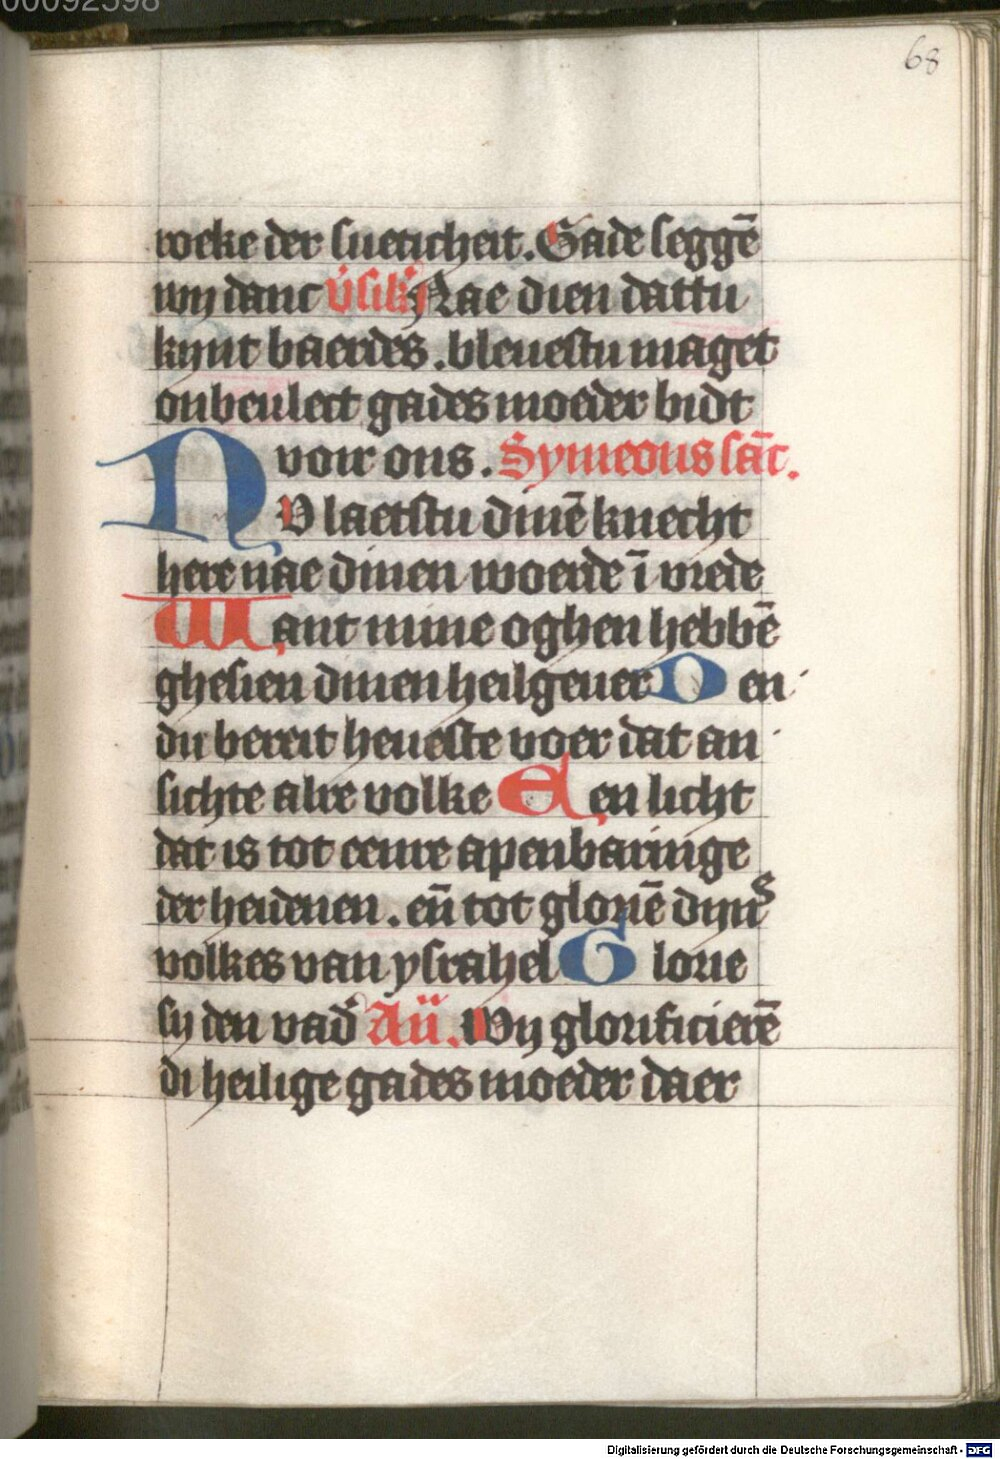 00092598
68
roeke der sueticheit. Gade seggē
wij danc v̄sik͛ Nae dien dattu
kijnt baerdes. bleuestu maget
onbeulect gades moeder bidt
voir ons. Symeons sāc.
NV laetstu dinē knecht
here nae dinen woerde ī vrede
Want mine oghen hebbē
ghesien dinen heilgeuer Den
du bereit heueste voer dat an
sichte alre volke Een licht
dat is tot eenre apenbaringe
der heidenen. eñ tot glorīe dijns
volkes van ysrahel Glorie
sij den vad͛ Aū. Wij glorificierē
di heilige gades moeder daer
Digitalisierung gefördert durch die Deutsche Forschungsgemeinschaft - DFG